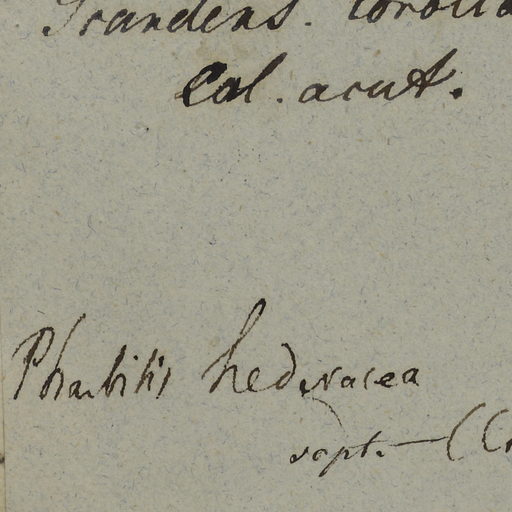 Scandens. Coroll
Cal. acut.
Pharbitis hederacea
sept. — (C